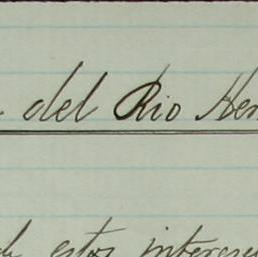 del Rio Hen
de estos interese